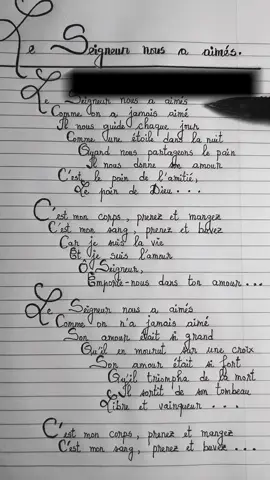 Le Seigneur nous a aimés.
Le Seigneur nous a aimés
Comme on a jamais aimé
Il nous guide chaque jour
Comme une étoile dans la nuit
Quand nous partageons le pain
Il nous donne son amour
C'est le pain de l'amitié,
Le pain de Dieu...
C'est mon corps, prenez et mangez
C'est mon sang, prenez et bavez
Car je suis la vie
Et je suis l'amour
Ô, Seigneur,
Emporte-nous dans ton amour...
Le Seigneur nous a aimés
Comme on n'a jamais aimé
Son amour était si grand
Qu'il en mourut sur une croix
Son amour était si fort
Qu'il triompha de la mort
Il sortit de son tombeau
Libre et vainqueur ....
C'est mon corps, prenez et mangez
C'est mon sang, prenez et buvez ...